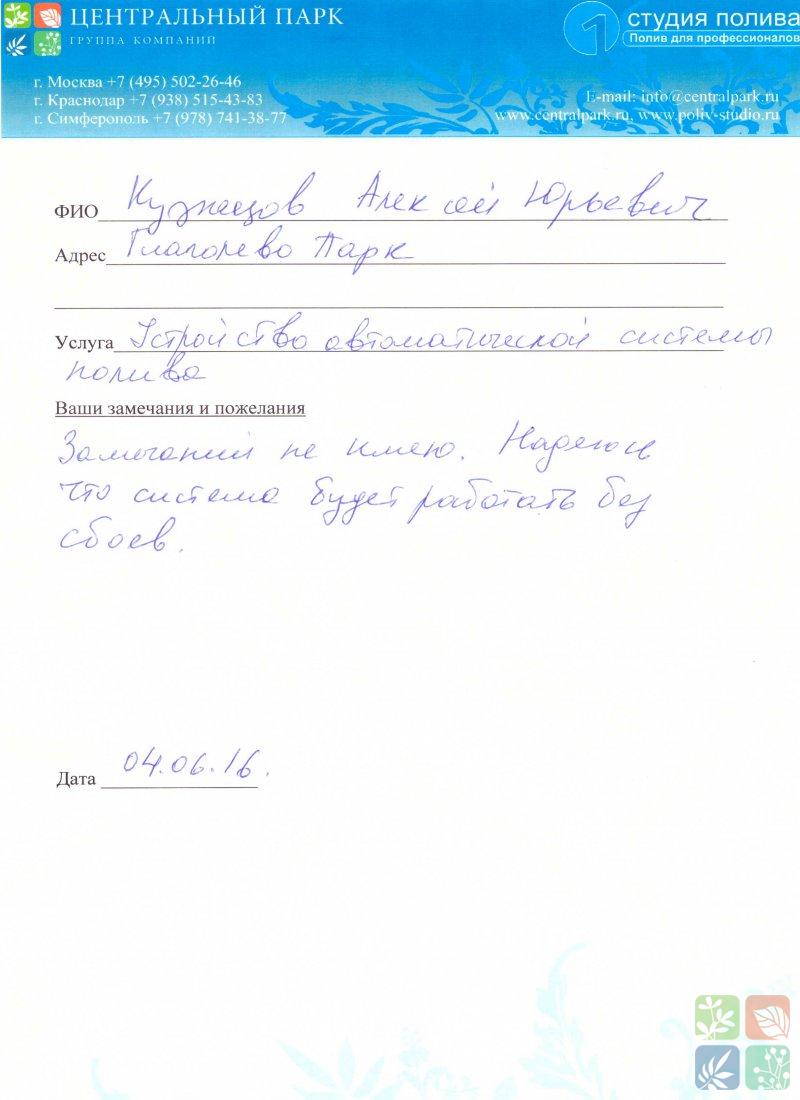 ЦЕНТРАЛЬНЫЙ ПАРК
ГРУППА КОМПАНИЙ
1 студия полива
Полив для профессионалов
г. Москва +7 (495) 502-26-46
г. Краснодар +7 (938) 515-43-83
г. Симферополь +7 (978) 741-38-77
E-mail: info@centralpark.ru
www.centralpark.ru, www.poliv-studio.ru
ФИО Кузнецов Алексей Юрьевич
Адрес Глаголево Парк
Услуга Устройство автоматической системы
полива
Ваши замечания и пожелания
Замечаний не имею. Надеюсь
что система будет работать без
сбоев.
Дата 04.06.16.